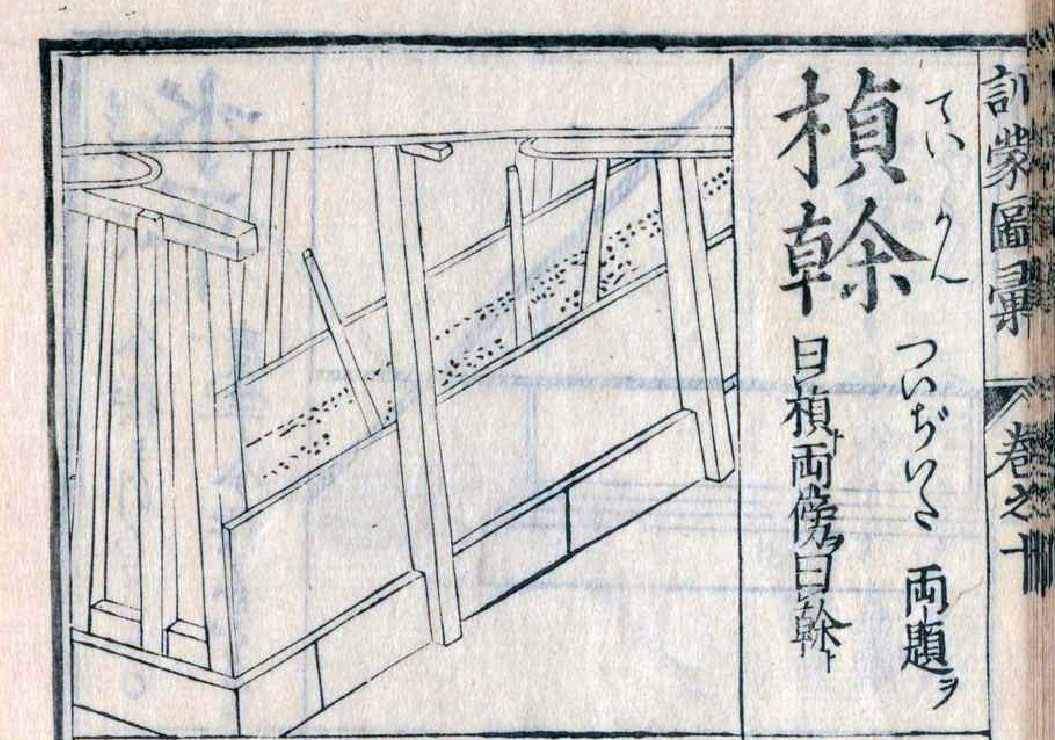 訓蒙圖彙 巻之十
ていかん
楨榦
ついぢいた 両題ヲ
曰楨ト両傍ヲ曰榦ト